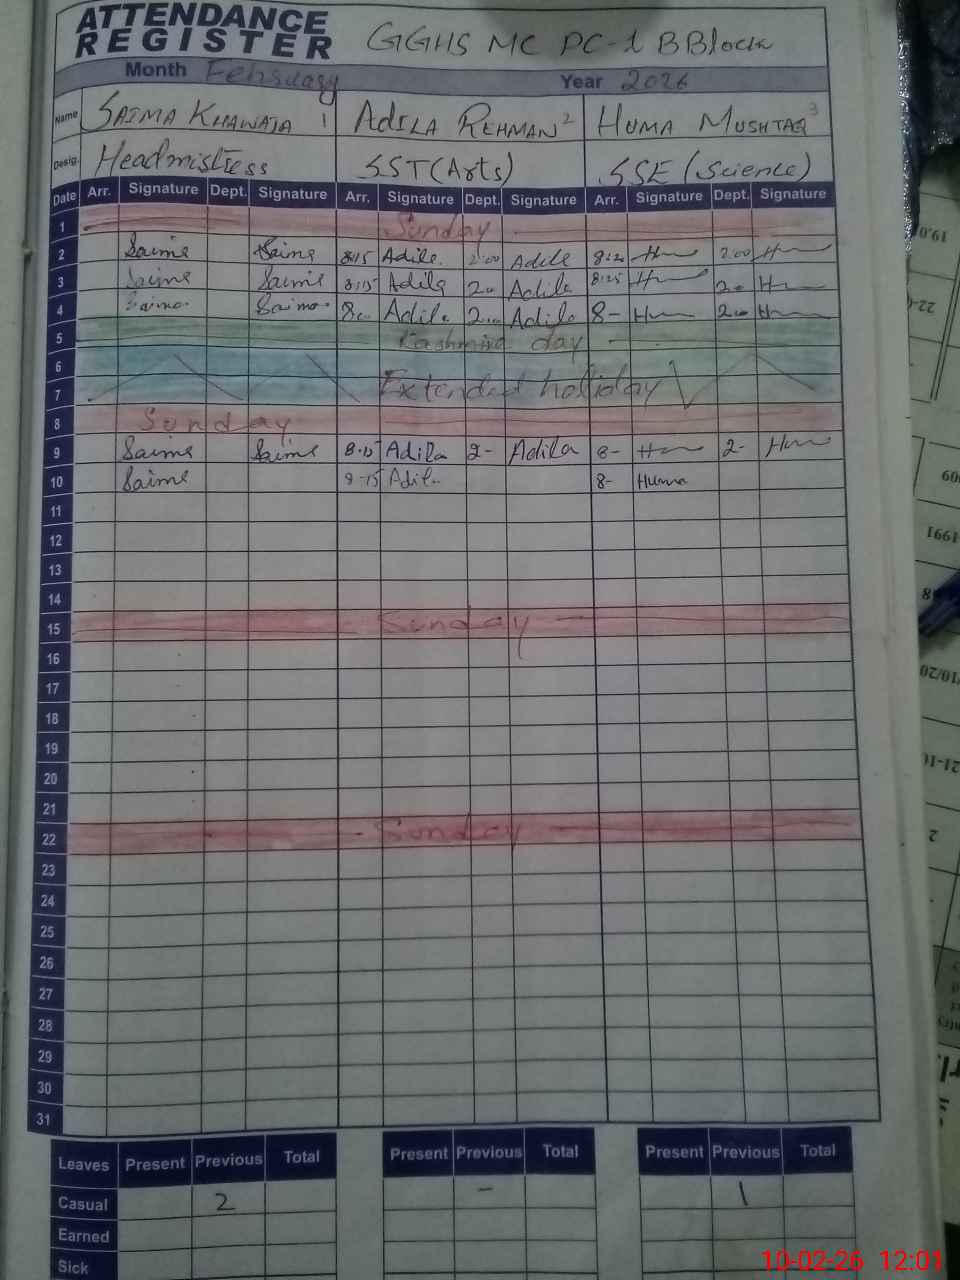 ATTENDANCE REGISTER GGHS MC PC-1 B Block
Month Februsary Year 2026
Name SAIMA KHAWAJA 1 ADILA REHMAN 2 HUMA MUSHTAQ 3
Desig. Headmistress SST (Arts) SSE (Science)
Date Arr. Signature Dept. Signature Arr. Signature Dept. Signature Arr. Signature Dept. Signature
1 Sunday
2 Saima Saima 8:15 Adila 2:00 Adila 8:20 Hum 2:00 Hum
3 Saima Saima 8:15 Adila 2:00 Adila 8:25 Hum 2:00 Hum
4 Saima Saima 8:00 Adila 2:00 Adila 8- Hum 2:00 Hum
5 Kashmir day
6
7 Extended holiday
8 Sunday
9 Saima Saima 8:15 Adila 2- Adila 8- Hum 2- Hum
10 Saima 8-15 Adila 8- Huma
11
12
13
14
15 Sunday
16
17
18
19
20
21
22 Sunday
23
24
25
26
27
28
29
30
31
Leaves Present Previous Total Present Previous Total Present Previous Total
Casual 2 - 1
Earned
Sick
10-02-26 12:01